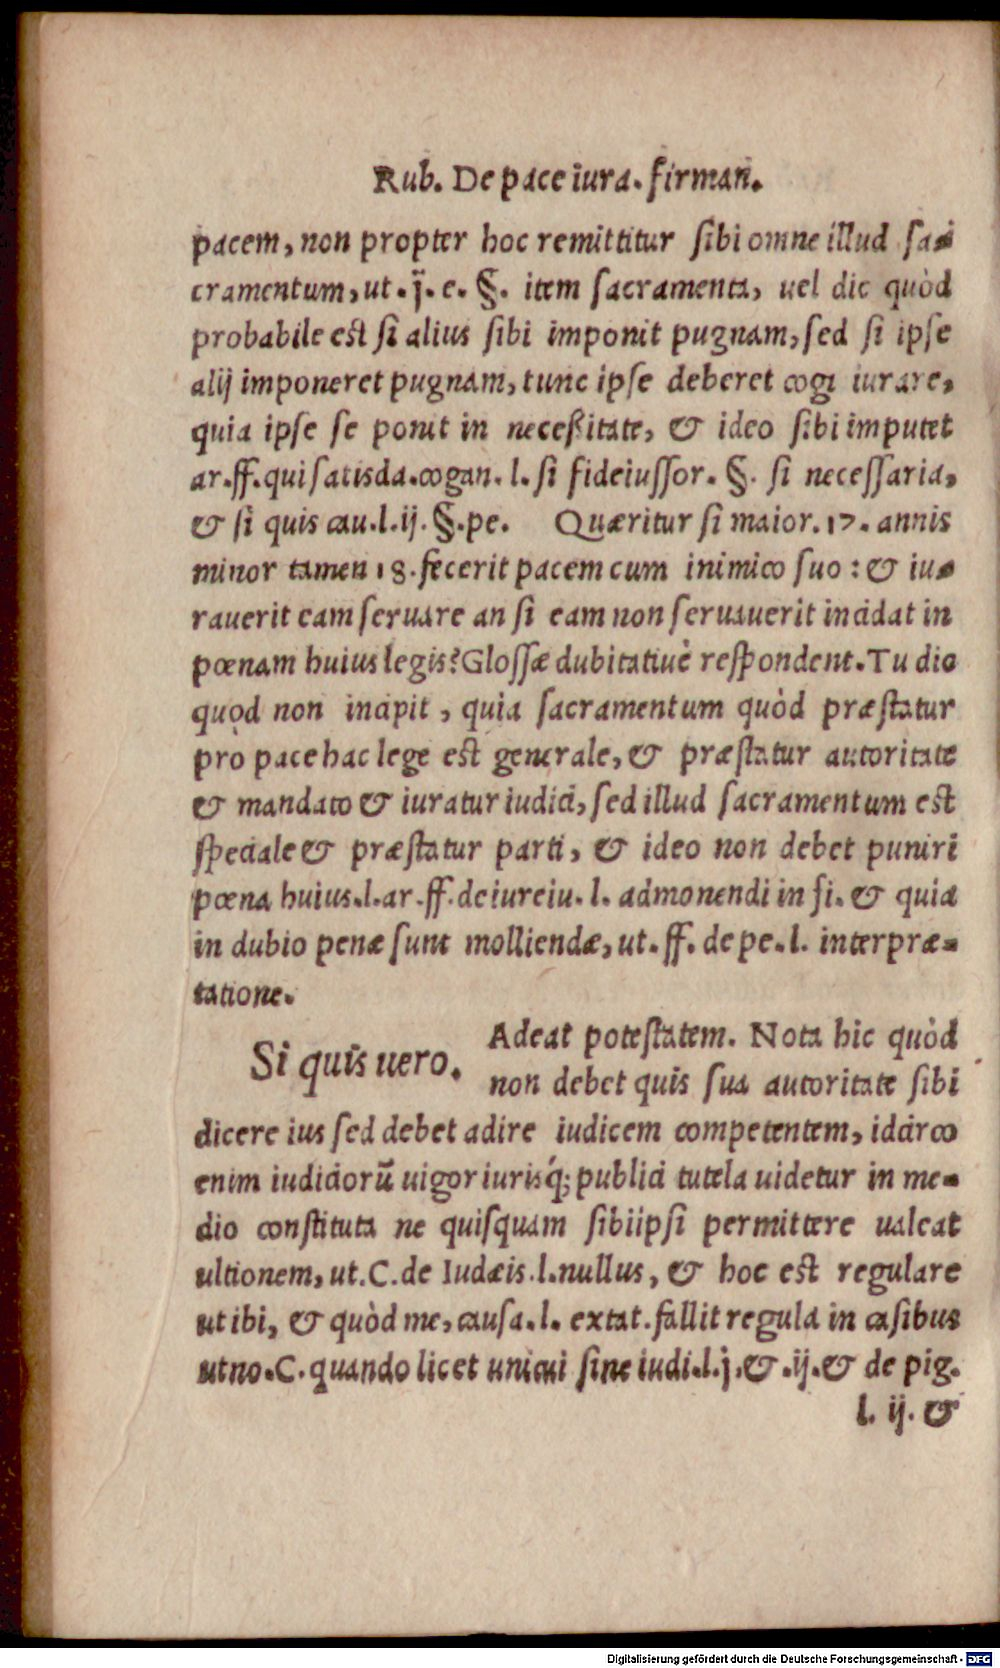 Rub. De pace iura. firman.
pacem, non propter hoc remittitur sibi omne illud sa-
cramentum, ut. j̈. e. §. item sacramenta, vel dic quòd
probabile est si alius sibi imponit pugnam, sed si ipse
alij imponeret pugnam, tunc ipse deberet cogi iurare,
quia ipse se ponit in necessitate, & ideo sibi imputet
ar. ff. qui satisda. cogan. l. si fideiussor. §. si necessaria,
& si quis cau. l. ij. §. pe. Quæritur si maior. 17. annis
minor tamen 18. fecerit pacem cum inimico suo: & iu-
rauerit eam seruare an si eam non seruauerit incidat in
pœnam huius legis? Glossæ dubitatiuè respondent. Tu dic
quod non incipit, quia sacramentum quòd præstatur
pro pace hac lege est generale, & præstatur autoritate
& mandato & iuratur iudici, sed illud sacramentum est
speciale & præstatur parti, & ideo non debet puniri
pœna huius. l. ar. ff. de iureiu. l. admonendi in fi. & quia
in dubio penæ sunt molliendæ, ut. ff. de pe. l. interpræ-
tatione.
Si quis uero. Adeat potestatem. Nota hic quòd
non debet quis sua autoritate sibi
dicere ius sed debet adire iudicem competentem, idcirco
enim iudiciorũ uigor iurisq́; publici tutela uidetur in me-
dio constituta ne quisquam sibiipsi permittere ualeat
ultionem, ut. C. de Iudæis. l. nullus, & hoc est regulare
ut ibi, & quòd me, causa. l. extat. fallit regula in casibus
ut no. C. quando licet unicui sine iudi. l. j. & . ij. & de pig.
l. ij. &
Digitalisierung gefördert durch die Deutsche Forschungsgemeinschaft - DFG